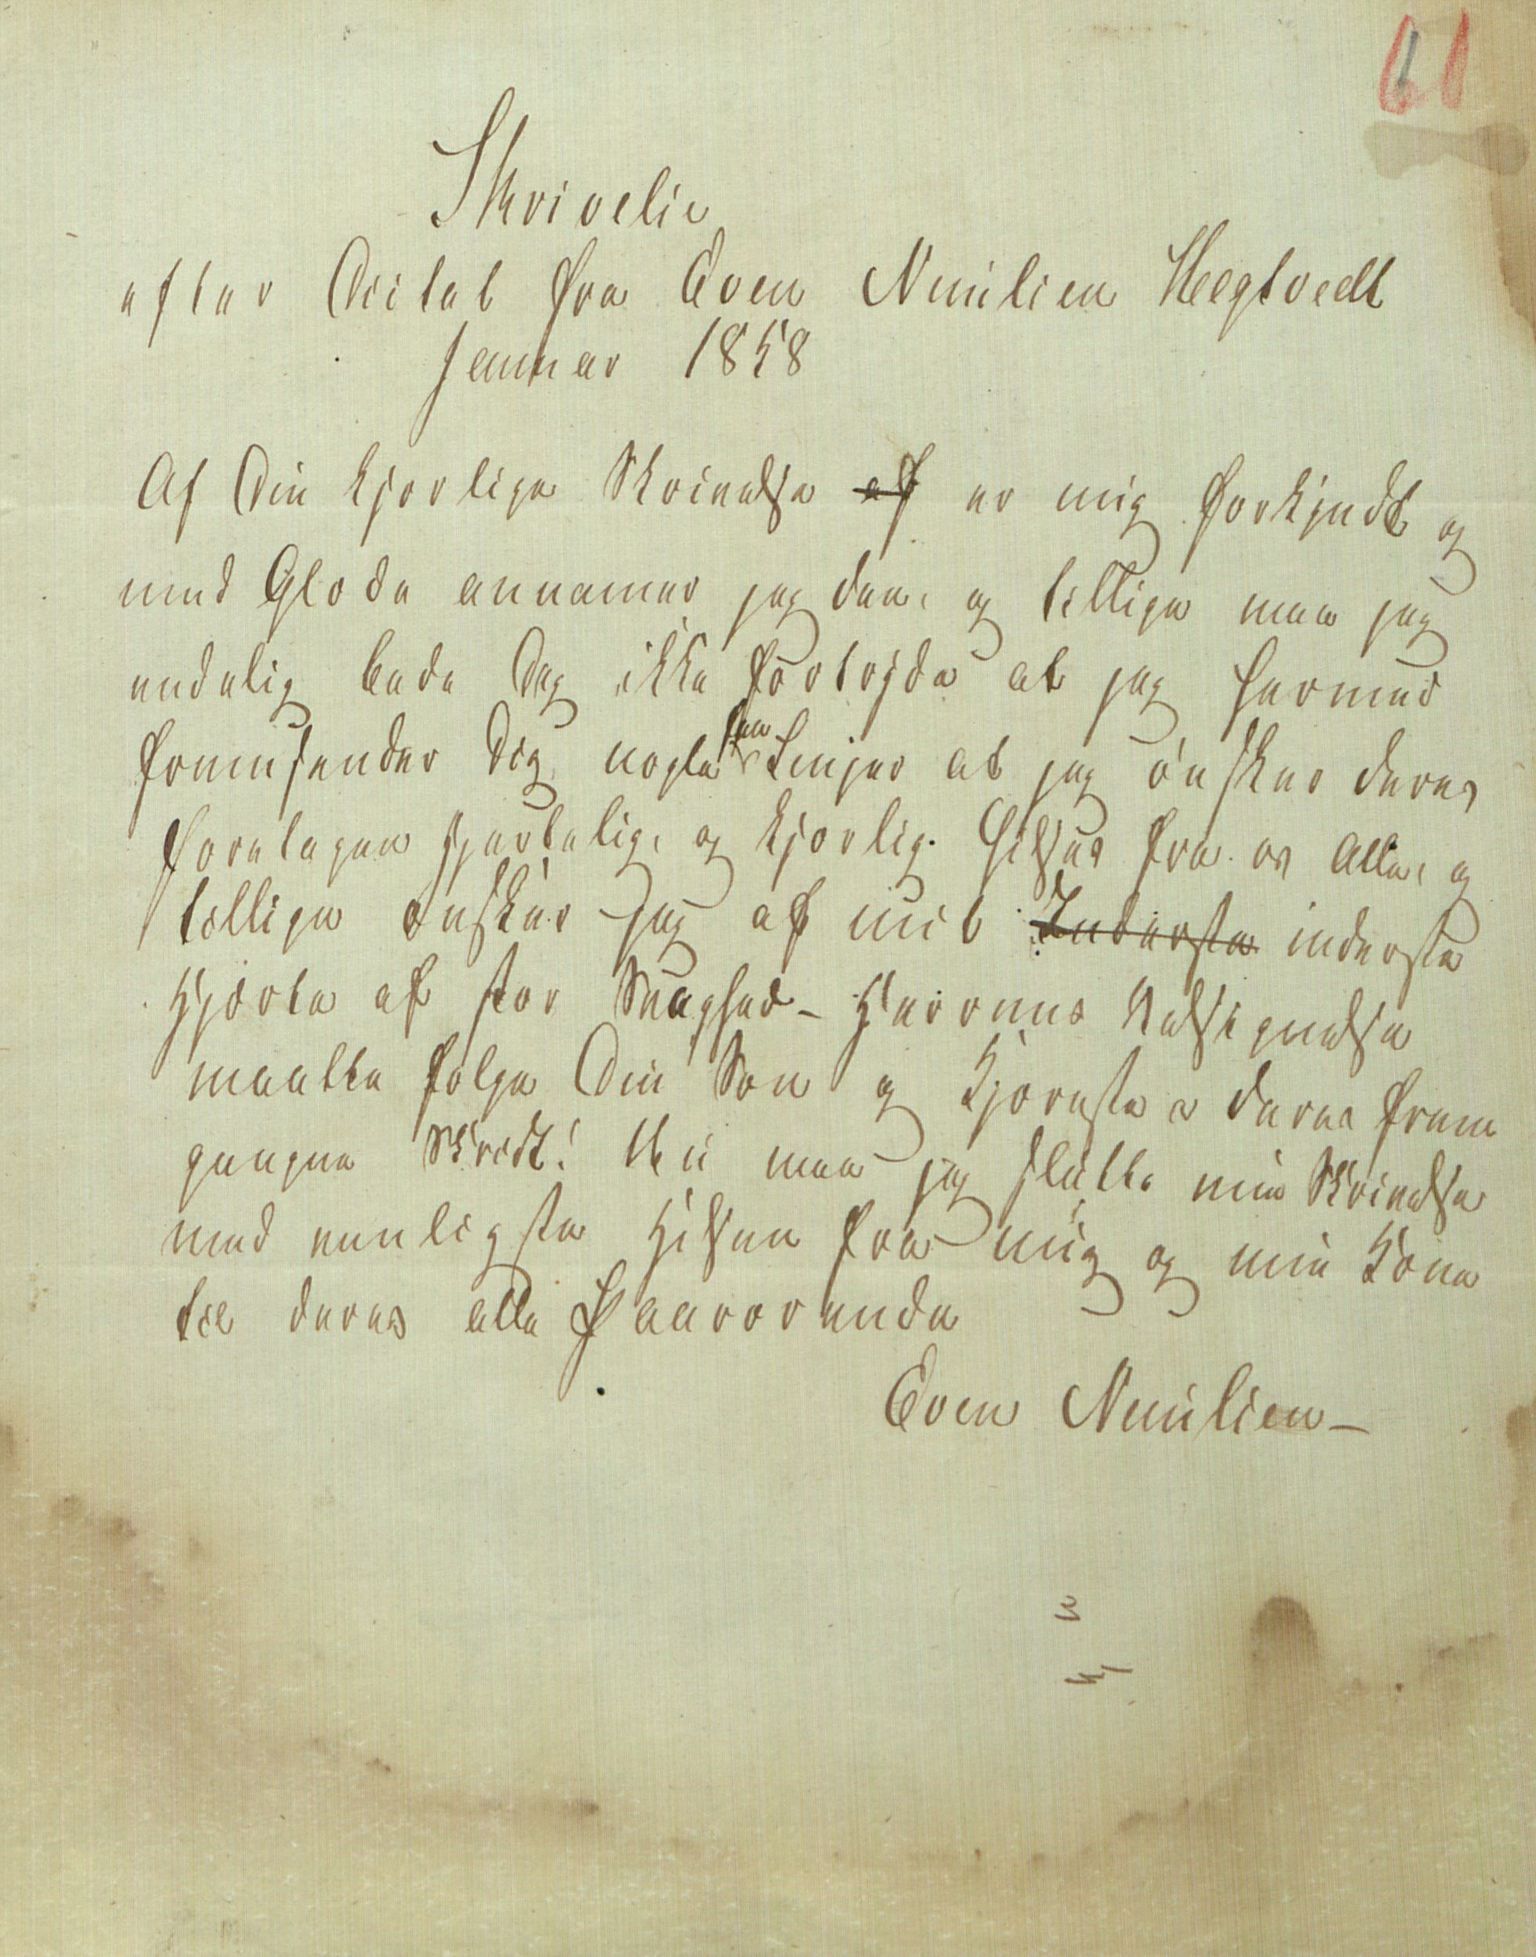 61
Skrivelie
efter Diitat fra Even Nuulien Hegtvedt
Januar 1858
Af Din kjerlige Skrivelse af er mig forkjndt og
med Glode annamer jeg den, og tillige maa jeg
endelig bede Dig ikke fortryde at jeg hermed
fremsender Dig nogle faa Linjer at jeg ønsker deres
foretagen hjertelig, og kjerlig. hilses fra os Alle, og
tillige ønsker jeg af mit Inderste inderste
Hjærte af stor Svaghed - Herrens Velsignelse
maatte følge Din Søn og Kjæreste i deres frem
gangne Skridt! Nu maa jeg slutte min Skrivelse
med venligste Hilsen fra mig og min Kone
til deres alle Paarørende
Even Nuulien -